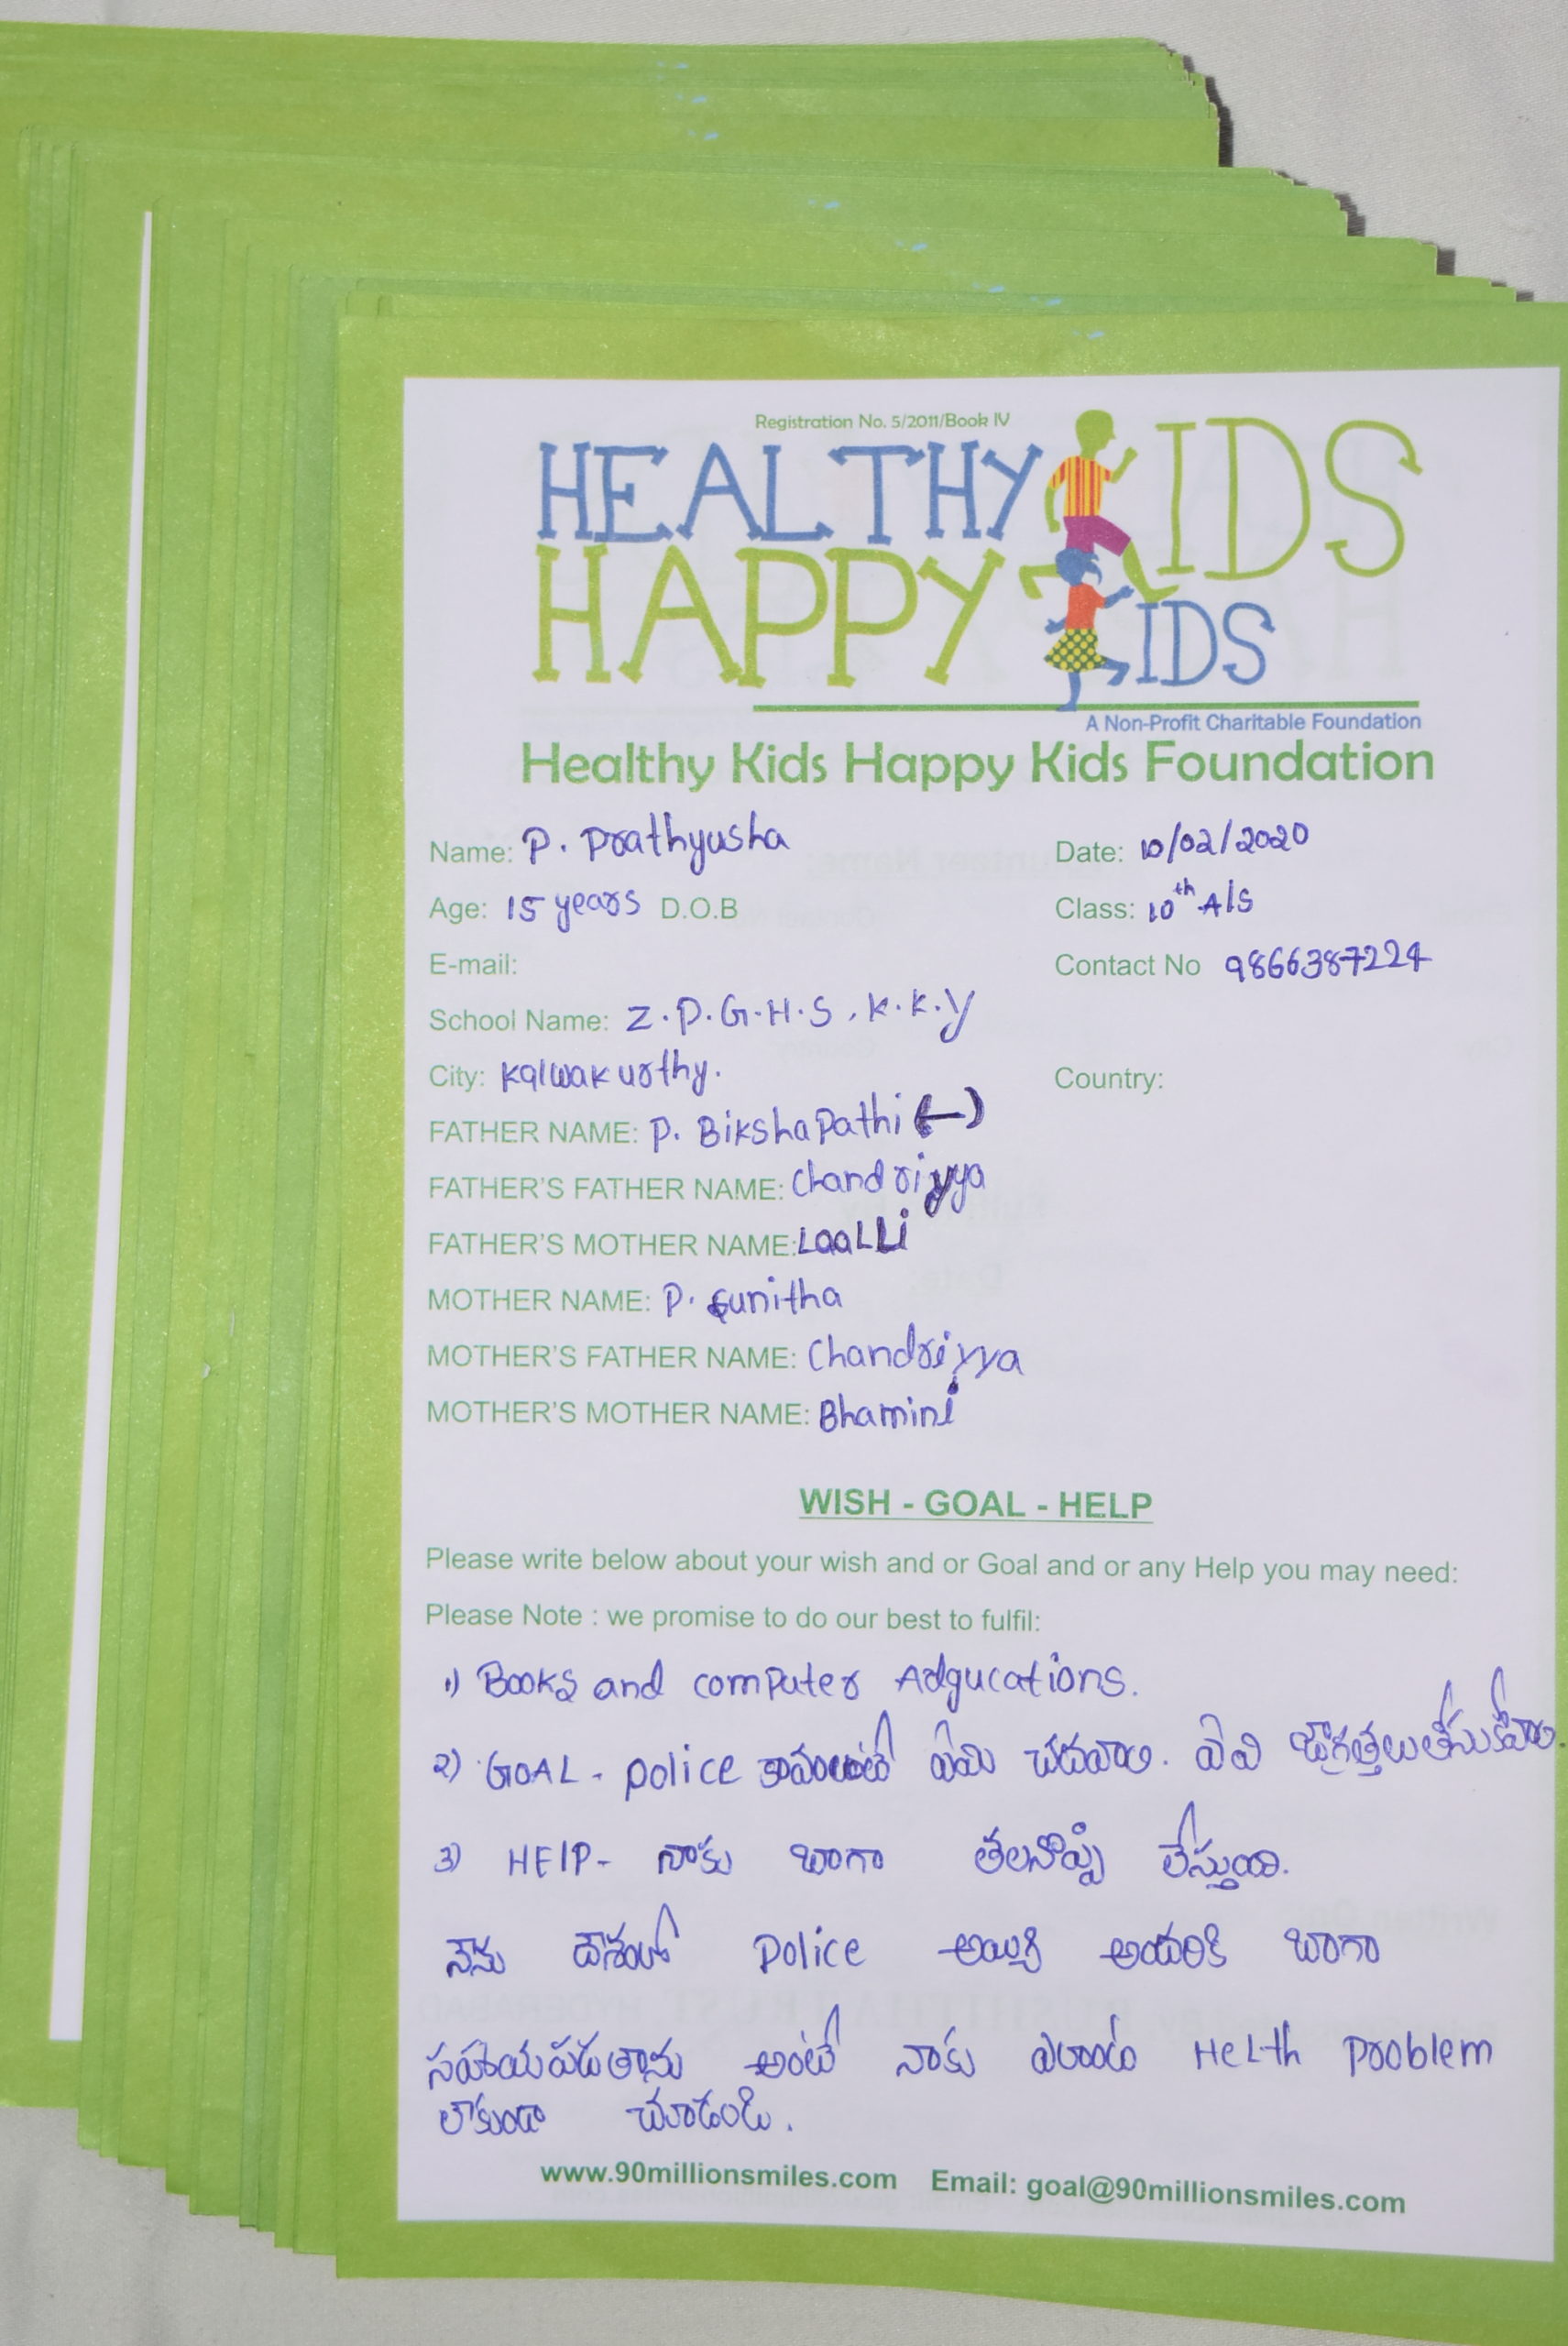 Registration No. 5/2011/Book IV
HEALTHY KIDS
HAPPY KIDS
A Non-Profit Charitable Foundation
Healthy Kids Happy Kids Foundation
Name: P. Prathyusha Date: 10/02/2020
Age: 15 years D.O.B Class: 10th A/S
E-mail: Contact No 9866387224
School Name: Z.P.G.H.S, K.K.Y
City: Kalwakurthy. Country:
FATHER NAME: P. BikshaPathi (-)
FATHER'S FATHER NAME: Chandriyya
FATHER'S MOTHER NAME: LaaLLi
MOTHER NAME: P. Sunitha
MOTHER'S FATHER NAME: Chandriyya
MOTHER'S MOTHER NAME: Bhamini
WISH - GOAL - HELP
Please write below about your wish and or Goal and or any Help you may need:
Please Note : we promise to do our best to fulfil:
1) Books and computer Adgucations.
2) GOAL - police కావలంటే ఏమి చదవాలి. ఏవి జాగ్రత్తలు తీసుకోవాలి.
3) HEIP- నాకు బాగా తలనొప్పి లేస్తుంది.
నేను దేశంలో Police అయ్యి అందరికి బాగా
సహయపడుతాను అంటే నాకు ఎలాంటి HeLth Problem
లేకుండా చూడండి.
www.90millionsmiles.com Email: goal@90millionsmiles.com